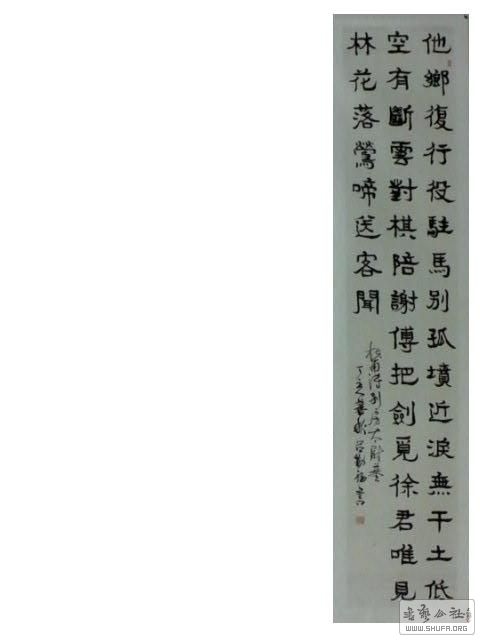 他鄉復行役駐馬別孤墳近淚無干土低
空有斷雲對棋陪謝傅把劍覓徐君唯見
林花落鶯啼送客聞
杜甫詩別房太尉墓
書
WWW.SHUFA.ORG